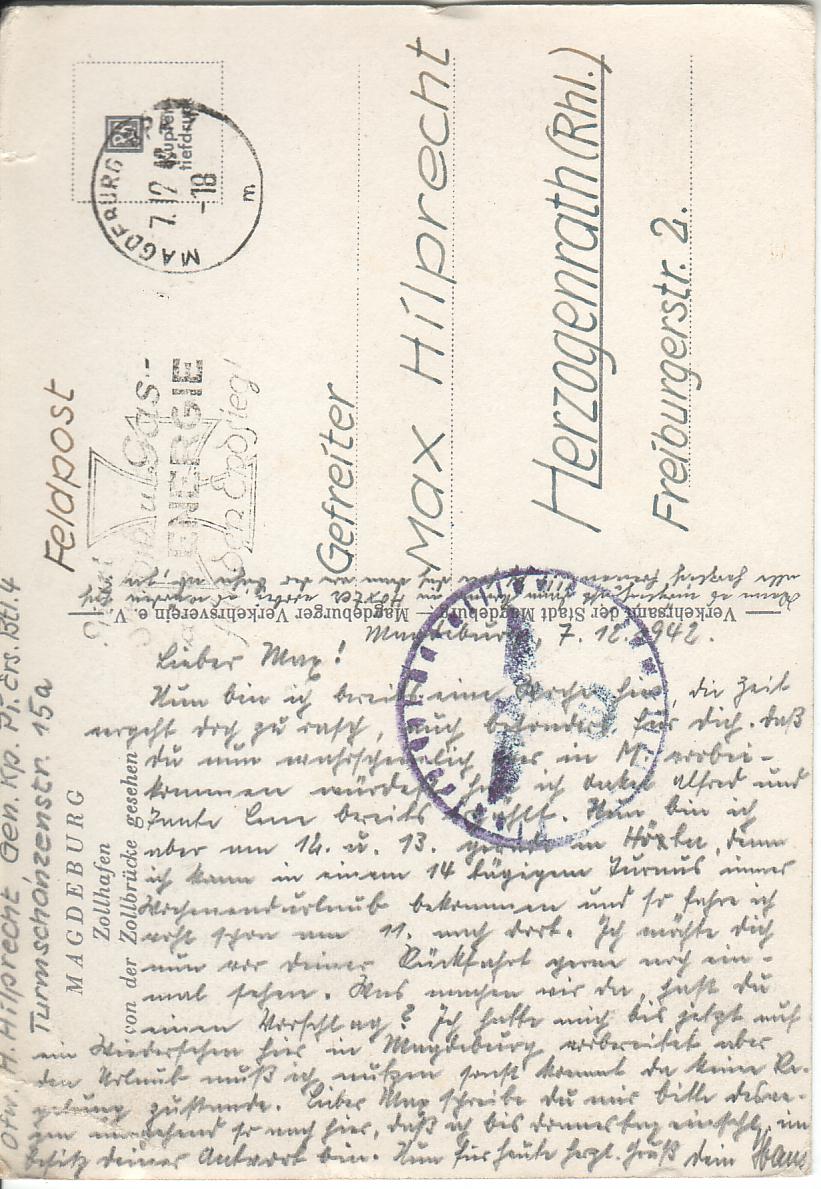 Feldpost
MAGDEBURG
7.12.42-18
m
Kupfer-
tiefdruck
Gas-
ENERGIE
den Endsieg!
Gefreiter
Max Hilprecht
Herzogenrath (Rhl.)
Freiburgerstr. 2.
Verkehrsamt der Stadt Magdeburg — Magdeburger Verkehrsverein e. V.
H. Hilprecht Gen. Kp. Pi. Ers. Btl. 4
Turmschanzenstr. 15a
MAGDEBURG
Zollhafen
von der Zollbrücke gesehen
Magdeburg, 7.12.1942.
Lieber Max!
Nun bin ich bereits eine Woche hier, die Zeit
vergeht doch zu rasch, auch besonders für dich. Daß
du nun wahrscheinlich hier in M. vorbei-
kommen würdest, hat ich Onkel Alfred und
Tante Lene bereits erzählt. Nun bin ich
aber am 12. u. 13. gerade in Höxter, denn
ich kann in einem 14 tägigem Turnus immer
Wochenendurlaub bekommen und so fahre ich
schon am 11. nach dort. Ich möchte dich
nun vor deiner Rückfahrt gerne noch ein-
mal sehen. Was machen wir da, hast du
einen Vorschlag? Ich hatte mich bis jetzt auf
ein Wiedersehen hier in Magdeburg vorbereitet aber
den Urlaub muß ich nutzen sonst kommt da keine Re-
gelung zustande. Lieber Max schreibe du mir bitte deswe-
gen umgehend so nach hier, daß ich bis Donnerstag einschl. im
Besitz deiner Antwort bin. Nun für heute herzl. Gruß dein Hans